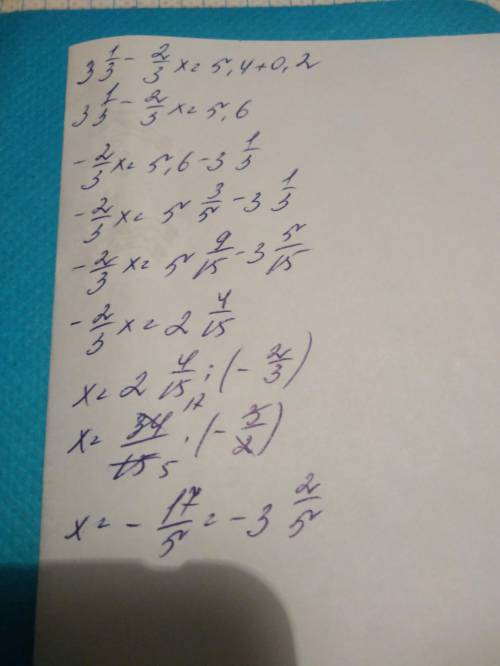 3 1/3 - 2/3 x = 5,4 + 0,2
3 1/3 - 2/3 x = 5,6
- 2/3 x = 5,6 - 3 1/3
- 2/3 x = 5 3/5 - 3 1/3
- 2/3 x = 5 9/15 - 3 5/15
- 2/3 x = 2 4/15
x = 2 4/15 : (- 2/3)
x = 34/15 · (- 3/2) 17 5
x = - 17/5 = - 3 2/5